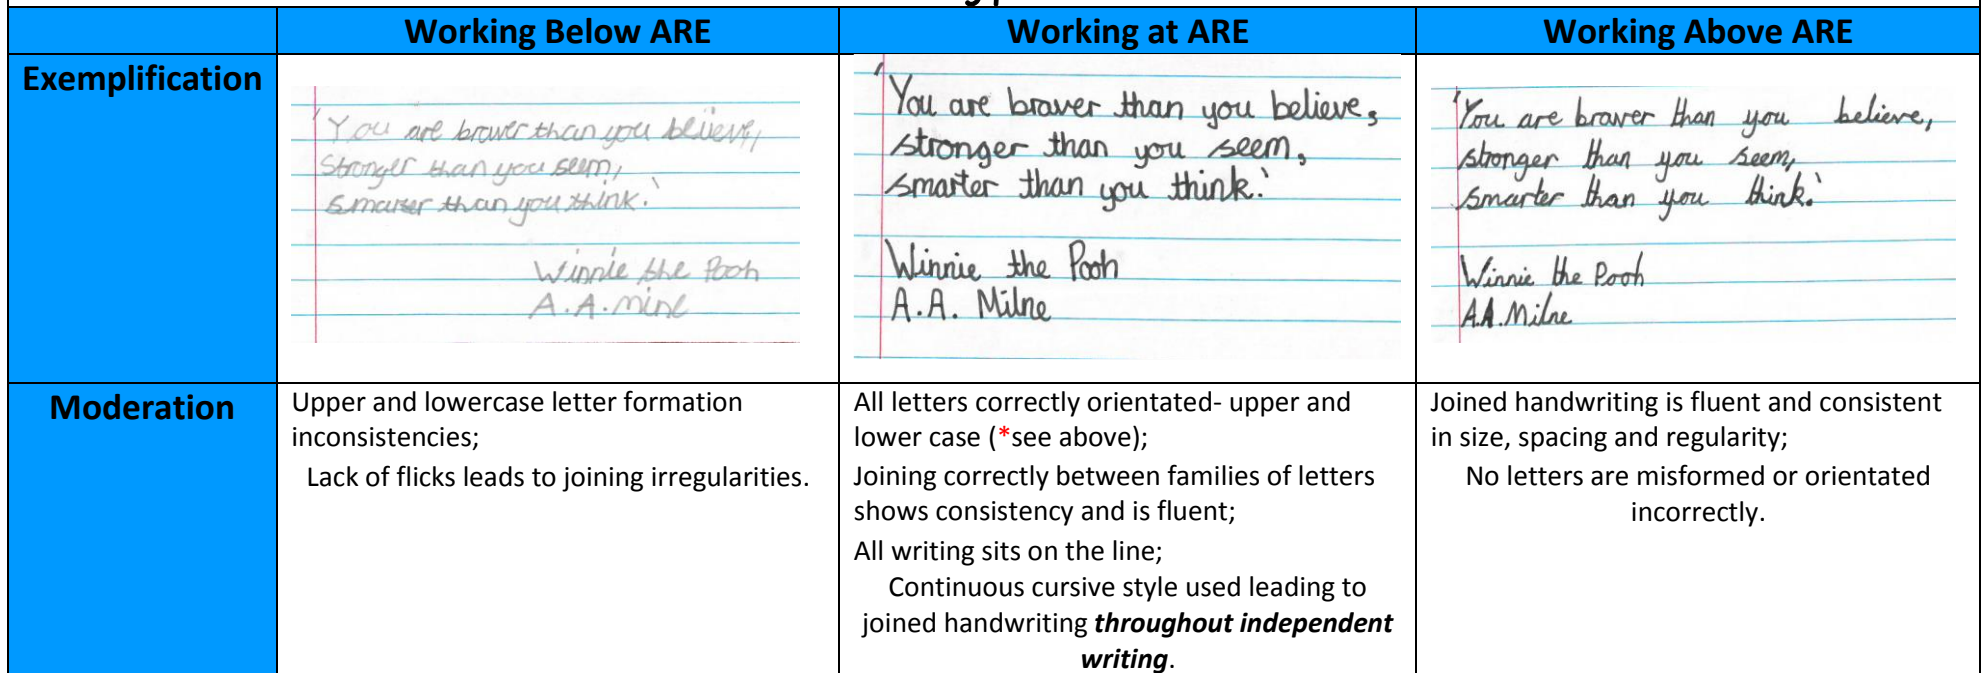 Working Below ARE
Working at ARE
Working Above ARE
Exemplification
'You are braver than you believe,
stronger than you seem,
smarter than you think.'
Winnie the Pooh
A.A. Mine
'You are braver than you believe,
stronger than you seem,
smarter than you think.'
Winnie the Pooh
A.A. Milne
'You are braver than you believe,
stronger than you seem,
smarter than you think.'
Winnie the Pooh
A.A. Milne
Moderation
Upper and lowercase letter formation
inconsistencies;
Lack of flicks leads to joining irregularities.
All letters correctly orientated- upper and
lower case (*see above);
Joining correctly between families of letters
shows consistency and is fluent;
All writing sits on the line;
Continuous cursive style used leading to
joined handwriting throughout independent
writing.
Joined handwriting is fluent and consistent
in size, spacing and regularity;
No letters are misformed or orientated
incorrectly.